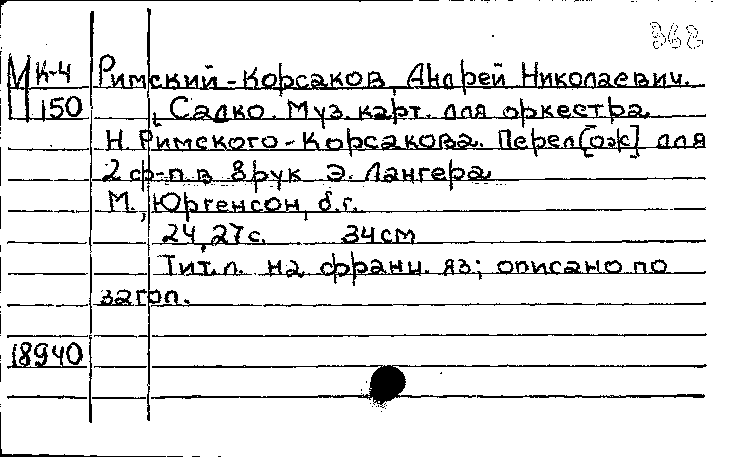 368
М К-4 Римский-Корсаков, Андрей Николаевич.
150 Садко. Муз. карт. для оркестра
Н. Римского-Корсакова. Перел[ож] для
2 ф-п в 8 рук Э. Лангера
М., Юргенсон, б.г.
24, 27 с. 34 см
Тит. л. на франц. яз; описано по
загол.
18940